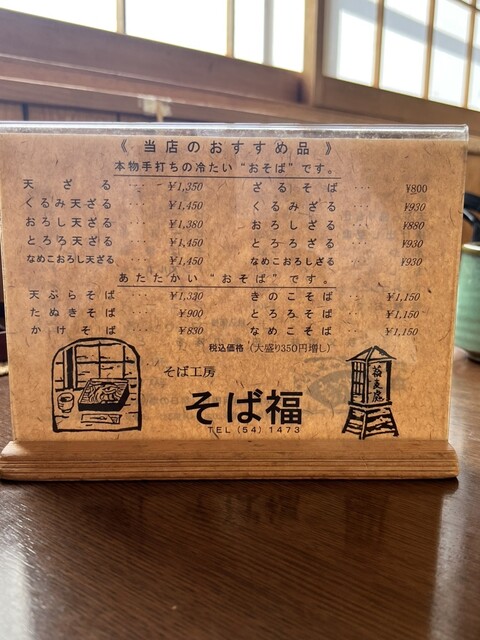 《 当店のおすすめ品 》
本物手打ちの冷たい“おそば”です。
天ざる ‥‥ ¥1,350 ざるそば ‥‥ ¥800
くるみ天ざる ‥‥ ¥1,450 くるみざる ‥‥ ¥930
おろし天ざる ‥‥ ¥1,380 おろしざる ‥‥ ¥880
とろろ天ざる ‥‥ ¥1,450 とろろざる ‥‥ ¥930
なめこおろし天ざる ¥1,450 なめこおろしざる ¥930
あたたかい“おそば”です。
天ぷらそば ‥‥ ¥1,330 きのこそば ‥‥ ¥1,150
たぬきそば ‥‥ ¥900 とろろそば ‥‥ ¥1,150
かけそば ‥‥ ¥830 なめこそば ‥‥ ¥1,150
税込価格（大盛り350円増し）
そば工房
そば福
TEL (54) 1473